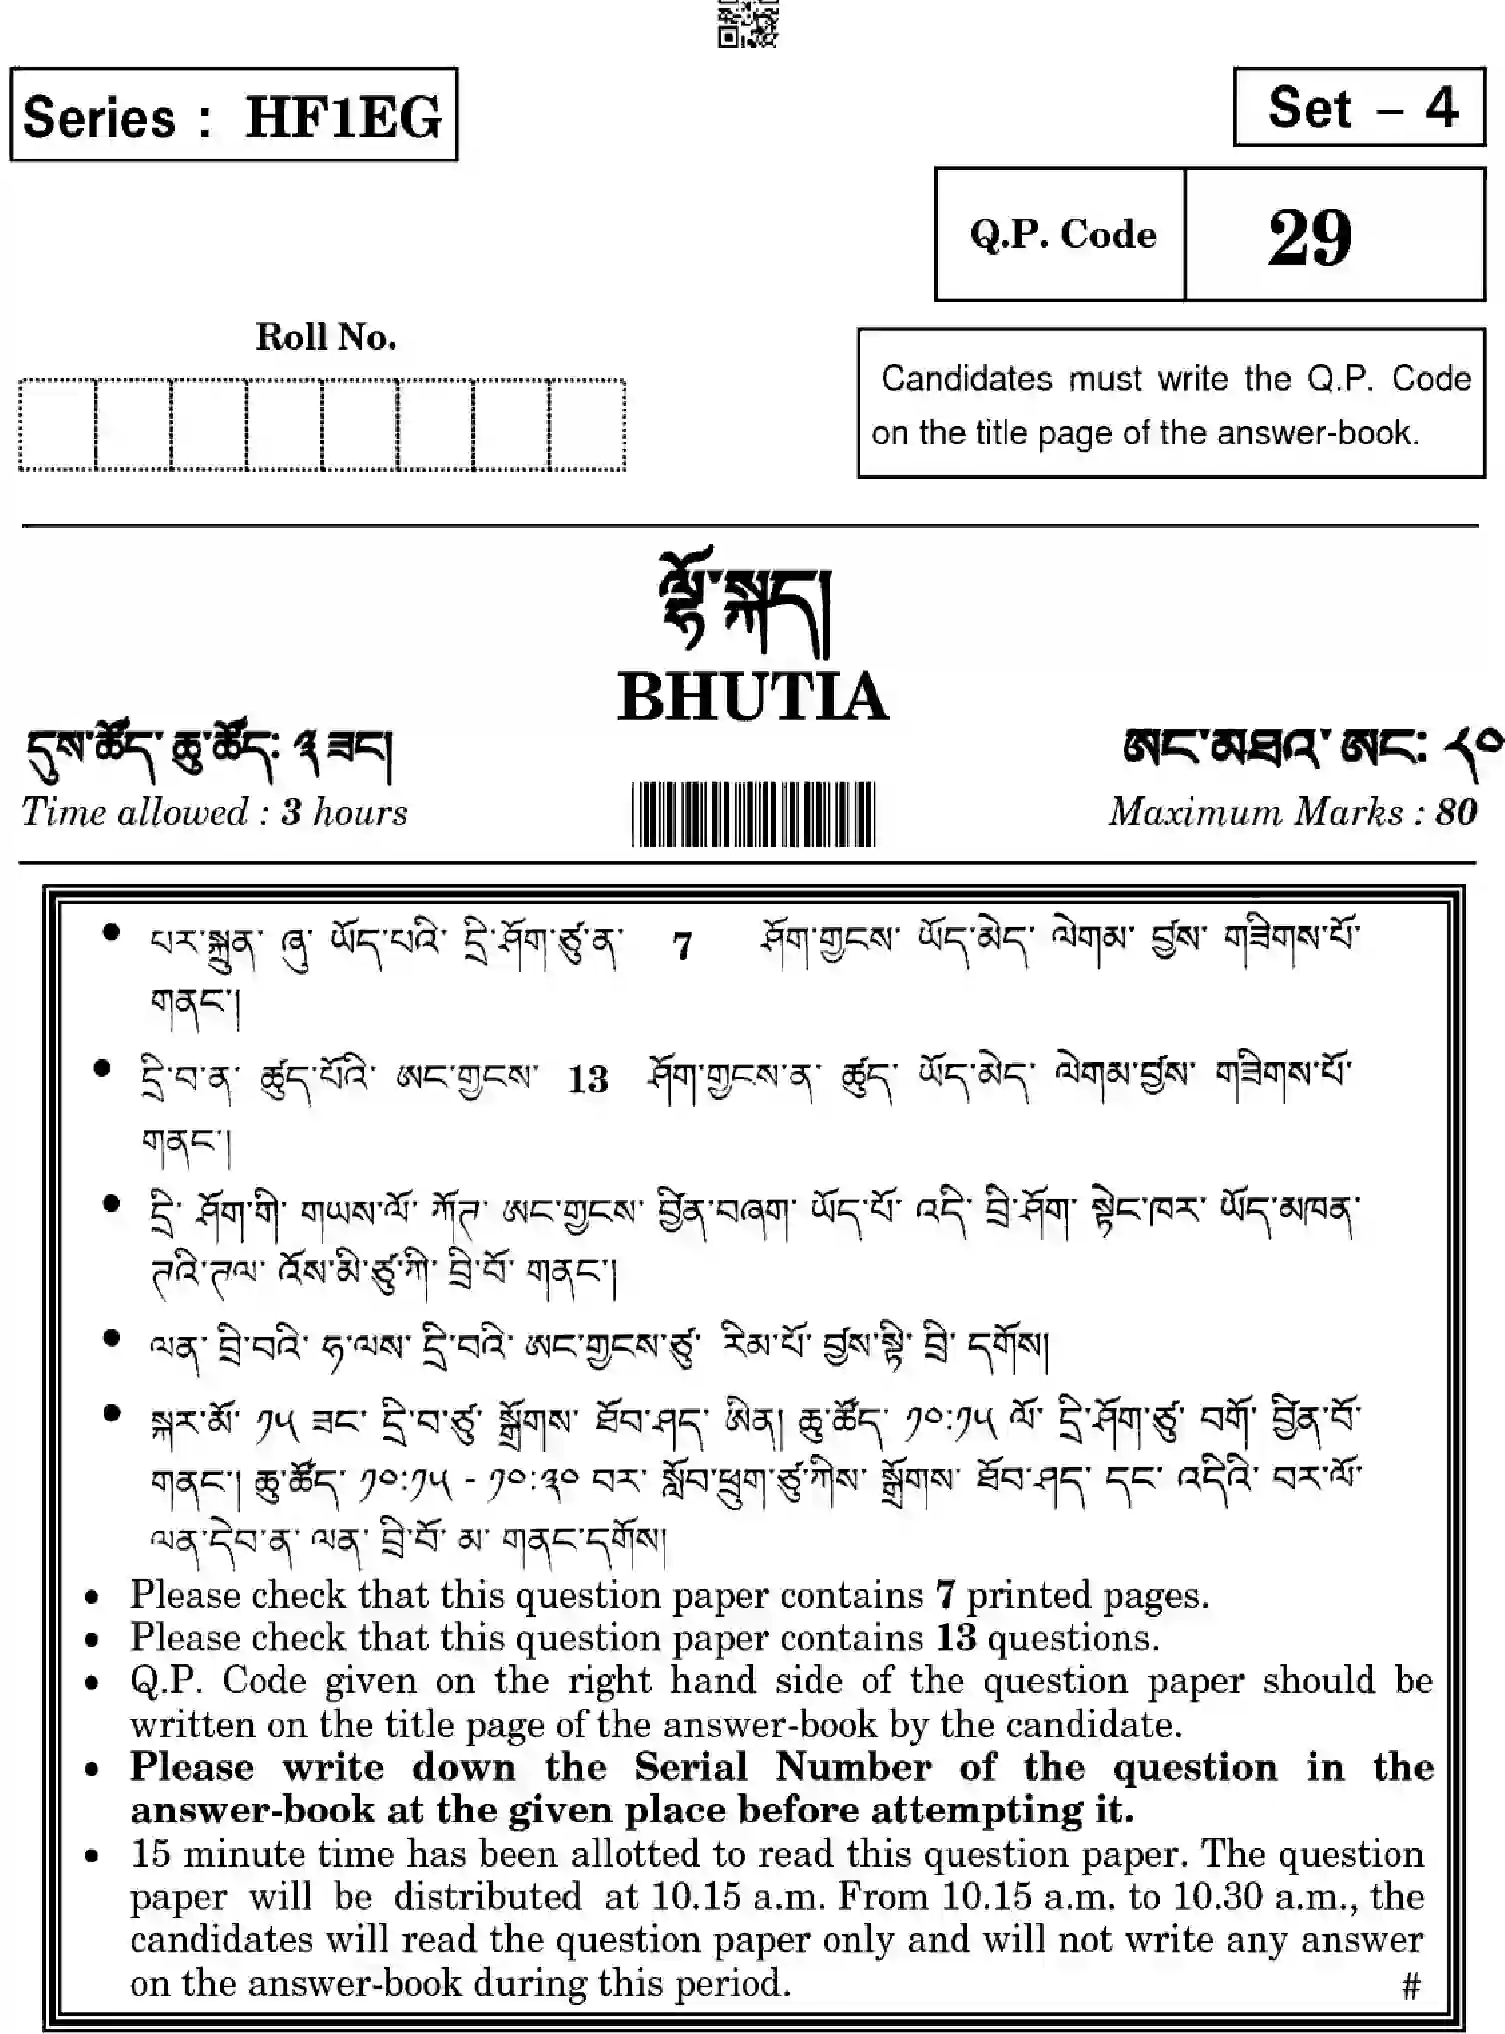 Series : HF1EG
Set – 4
Q.P. Code 29
Roll No.
Candidates must write the Q.P. Code
on the title page of the answer-book.
ལྷོ་སྐད།
BHUTIA
དུས་ཚོད་ ཆུ་ཚོད: ༣ ཟང།
ཨང་མཐའ་ ཨང: ༨༠
Time allowed : 3 hours
Maximum Marks : 80
• པར་སྐྲུན་ ཞུ་ ཡོད་པའི་ དྲི་ཤོག་ཙུ་ན་ 7 ཤོག་གྲངས་ ཡོད་མེད་ ལེགམ་ བྱས་ གཟིགས་པོ་
གནང་།
• དྲི་བ་ན་ ཚུད་པོའི་ ཨང་གྲངས་ 13 ཤོག་གྲངས་ན་ ཚུད་ ཡོད་མེད་ ལེགམ་བྱས་ གཟིགས་པོ་
གནང་།
• དྲི་ ཤོག་གི་ གཡས་ལོ་ ཀོཊ་ ཨང་གྲངས་ བྱིན་བཞག་ ཡོད་པོ་ འདི་ བྲི་ཤོག་ སྟེང་ཁར་ ཡོད་མཁན་
ཊའི་ཊལ་ འོས་མི་ཙུ་ཀི་ བྲི་བོ་ གནང་།
• ལན་ བྲི་བའི་ ཧ་ལས་ དྲི་བའི་ ཨང་གྲངས་ཙུ་ རིམ་པོ་ བྱས་སྟི་ བྲི་ དགོས།
• སྐར་མོ་ ༡༥ ཟང་ དྲི་བ་ཙུ་ སྒྲོགས་ ཐོབ་ཤད་ ཨིན། ཆུ་ཚོད་ ༡༠:༡༥ ལོ་ དྲི་ཤོག་ཙུ་ བགོ་ བྱིན་བོ་
གནང་། ཆུ་ཚོད་ ༡༠:༡༥ - ༡༠:༣༠ བར་ སློབ་ཕྲུག་ཙུ་ཀིས་ སྒྲོགས་ ཐོབ་ཤད་ དང་ འདིའི་ བར་ལོ་
ལན་དེབ་ན་ ལན་ བྲི་བོ་ མ་ གནང་དགོས།
• Please check that this question paper contains 7 printed pages.
• Please check that this question paper contains 13 questions.
• Q.P. Code given on the right hand side of the question paper should be
written on the title page of the answer-book by the candidate.
• Please write down the Serial Number of the question in the
answer-book at the given place before attempting it.
• 15 minute time has been allotted to read this question paper. The question
paper will be distributed at 10.15 a.m. From 10.15 a.m. to 10.30 a.m., the
candidates will read the question paper only and will not write any answer
on the answer-book during this period. #